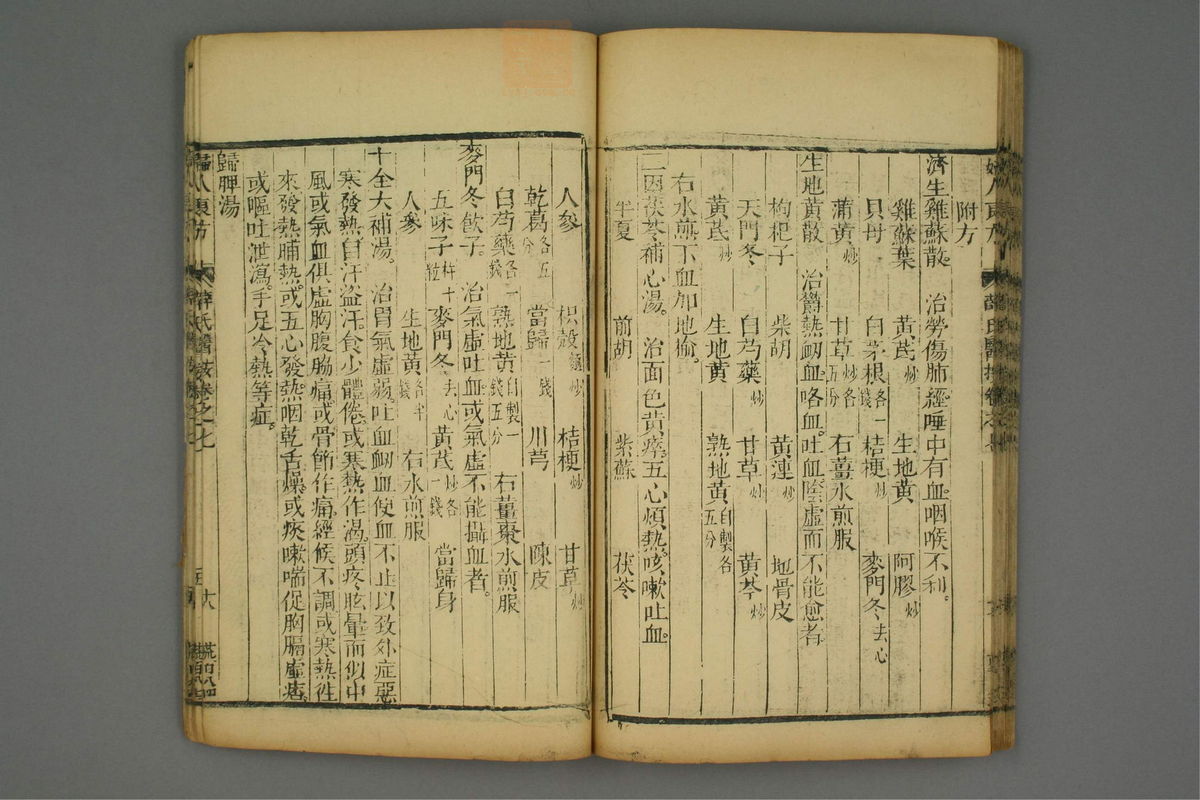 附方
濟生雞蘇散 治勞傷肺經唾中有血咽喉不利。
雞蘇葉 黃芪炒 生地黃 阿膠炒
貝母 白茅根各一錢 桔梗炒 麥門冬去心
蒲黃炒 甘草炒各五分 右薑水煎服
生地黃散 治鬱熱衂血咯血。吐血陰虛而不能愈者。
枸杞子 柴胡 黃連炒 地骨皮
天門冬 白芍藥炒 甘草炒 黃芩炒
黃芪炒 生地黃 熟地黃自製各五分
右水煎下血加地榆。
三因茯苓補心湯。 治面色黃瘁五心煩熱。咳嗽吐血
半夏 前胡 紫蘇 茯苓
人參 枳殼麵炒 桔梗炒 甘草炒
乾葛各五分 當歸一錢 川芎 陳皮
白芍藥各一錢 熟地黃自製一錢五分 右薑棗水煎服
麥門冬飲子。 治氣虛吐血或氣虛不能攝血者。
五味子杵十粒 麥門冬去心 黃芪炒各一錢 當歸身
人參 生地黃各半錢 右水煎服
十全大補湯。 治胃氣虛弱吐血衂血便血不止以致外症惡
寒發熱自汗盜汗。食少體倦。或寒熱作渴。頭疼眩暈而似中
風或氣血俱虛胸腹脇痛或骨節作痛。經候不調或寒熱徃
來發熱晡熱。或五心發熱。咽乾舌燥。或痰嗽喘促胸膈虛痞。
或嘔吐泄瀉。手足冷熱等症。
歸脾湯
婦人良方 薛氏醫按卷之七